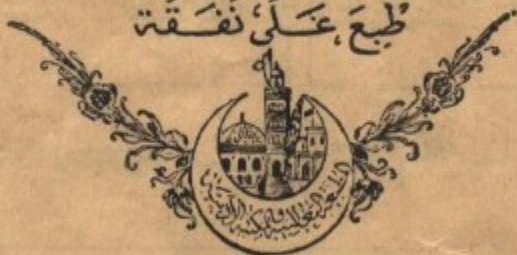 طُبِعَ عَلَى نَفَقَة
المطبعة الثعالبية والمكتبة الأدبية